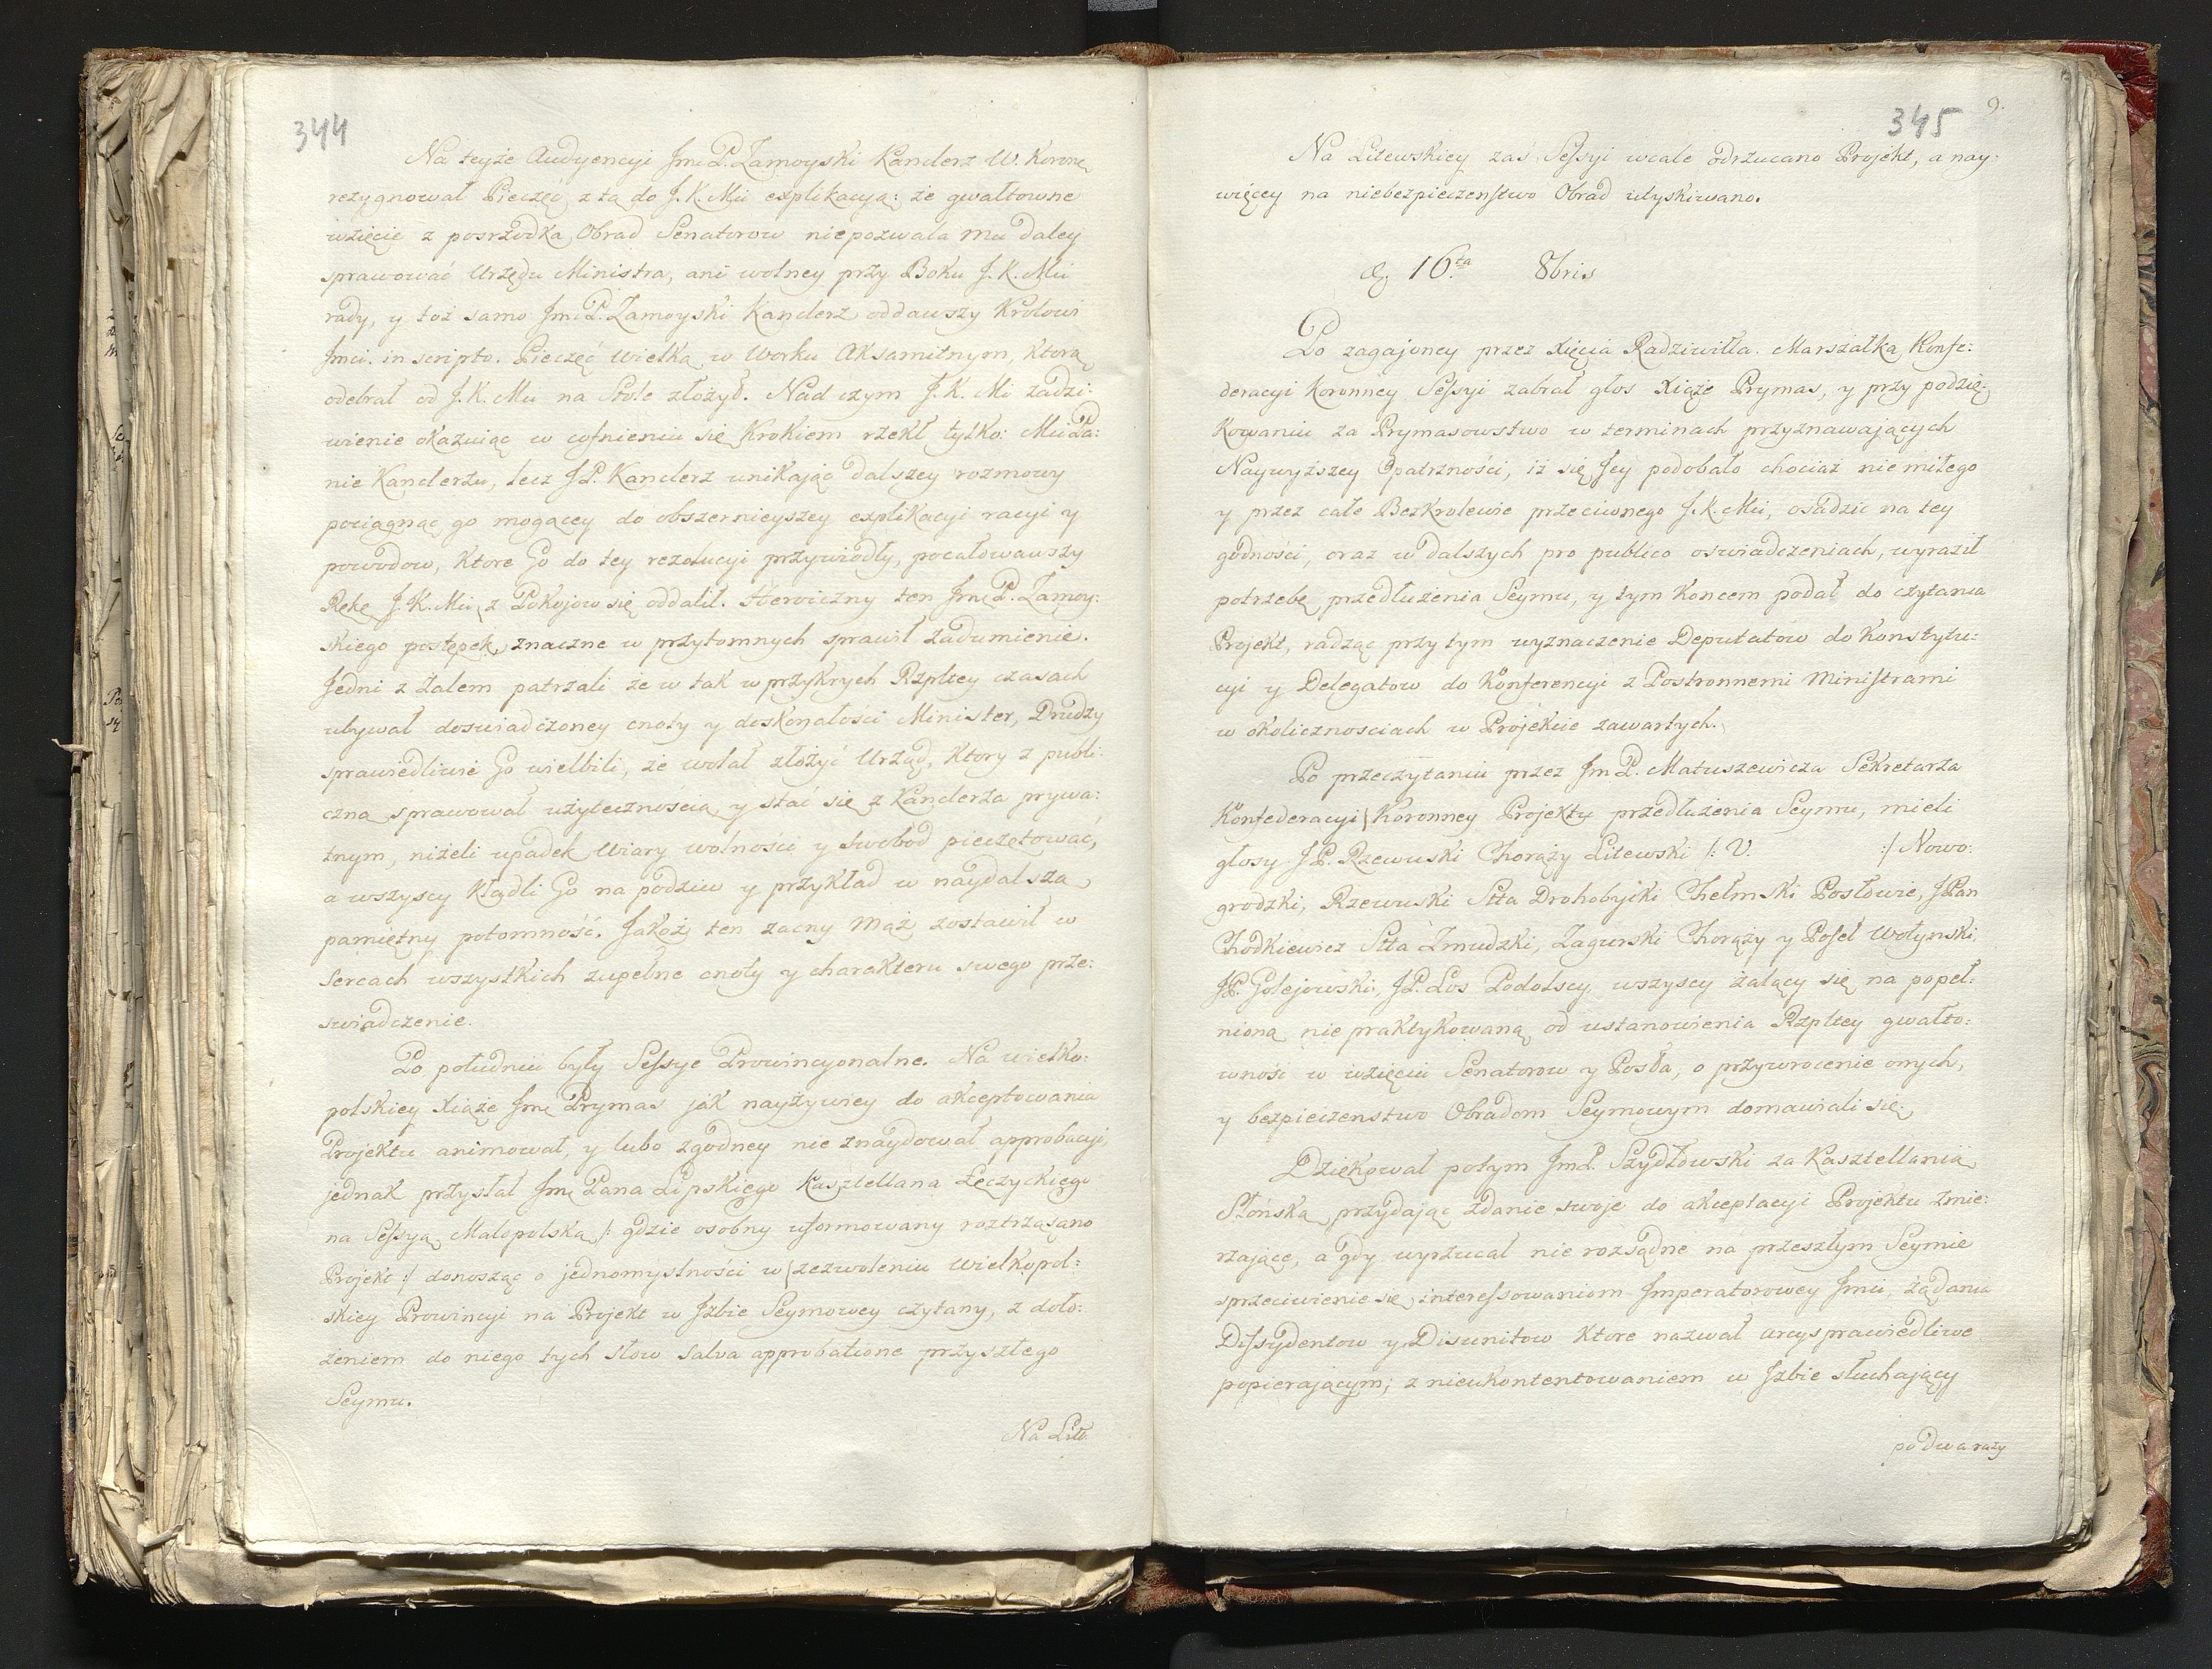 344
Na teyże Audyencyi Jmć P. Zamoyski Kanclerz W. Koronę
rezygnował Pieczęć z tą do J. K. Mci explikacyą: że gwałtowne
wzięcie z pośrzodka Obrad Senatorow niepozwala mu daley
sprawować Urzędu Ministra, ani wolney przy Boku J. K. Mci
rady, y toż samo Jmć P. Zamoyski Kanclerz oddawszy Krolowi
Jmci. in scripto. Pieczęć Wielką w Worku Aksamitnym, Ktorą
odebrał od J. K. Mci na Stole złożył. Nad czym J. K. Mć zadzi:
wienie okazuiąc w cofnieniu się Krokiem rzekł tylko: Mci Pa:
nie Kanclerzu, lecz J P. Kanclerz unikając dalszey rozmowy
pociągnąć go mogącey do obszernieyszey explikacyi racyi y
powodow, Ktore Go do tey rezolucyi przywiodły, pocałowawszy
Rękę J. K. Mci, z Pokojow się oddalił. Heroiczny ten Jmć P. Zamoy:
skiego postępek, znaczne w przytomnych sprawił zadumienie.
Jedni z Żalem patrzali że w tak w przykrych Rzpltey czasach
ubywał doswiadczoney cnoty y doskonałości Minister, Drudzy
sprawiedliwie Go wielbili, że wolał złożyć Urząd, Ktory z publi:
czną sprawował użytecznością, y stać się z Kanclerza prywa:
tnym, niżeli upadek Wiary wolności y Swobod pieczętować,
a wszyscy Kładli Go na podziw y przykład w naydalszą
pamiętny potomność. Jakoż ten zacny Mąż zostawił w
sercach wszystkich zupełne cnoty y charakteru swego prze:
swiadczenie.
Po południu były Sessye Prowincyonalne. Na wielko:
polskiey Xiąże Jmć Prymas jak nayżywiey do akceptowania
Projektu animował, y lubo zgodney nie znaydował approbacyi,
jednak przysłał Jmć Pana Lipskiego Kasztellana Łęczyckiego
na Sessyą Małopolską /: gdzie osobny uformowany roztrząsano
Projekt :/ donosząc o jednomyslności w zezwoleniu Wielkopol:
skiey Prowincyi na Projekt w Jzbie Seymowey czytany, z doło:
żeniem do niego tych słow salva approbatione przyszłego
Seymu.
Na Lite
345
9.
Na Litewskiey zaś Sessyi wcale odrzucano Projekt, a nay:
więcey na niebezpieczenstwo Obrad utyskiwano.
d. 16.ta 8bris
Po zagajoney przez Xięcia Radziwiłła Marszałka Konfe:
deracyi Koronney Sessyi zabrał głos Xiąże Prymas, y przy podzię:
Kowaniu za Prymasowstwo w terminach przyznawających
Naywyższey Opatrzności, iż się Jey podobało chociaż niemiłego
y przez całe BezKrolewie przeciwnego J. K. Mci, osadzić na tey
godności, oraz w dalszych pro publico oswiadczeniach, wyraził
potrzebę przedłużenia Seymu, y tym Koncem podał do czytania
Projekt, radząc przy tym wyznaczenie Deputatow do Konstytu:
cyi y Delegatow do Konferencyi z Postronnemi Ministrami
w okolicznosciach w Projekcie zawartych.
Po przeczytaniu przez Jm P. Matuszewicza Sekretarza
Konfederacyi Koronney Projektu przedłużenia Seymu, mieli
głosy J P. Rzewuski Chorąży Litewski /: V. :/ Nowo:
grodzki, Rzewuski Stta Drohobycki Chełmski Posłowie, J Pan
Chodkiewicz Stta Żmudzki, Zagurski Chorąży y Poseł Wołynski,
J P. Golejowski, J P. Los Podolscy wszyscy żalący się na popeł:
nioną niepraktykowaną od ustanowienia Rzpltey gwałto:
wność w wzięciu Senatorow y Posła, o przywrocenie onych,
y bezpieczenstwo Obradom Seymowym domawiali się.
Dziękował potym Jm P. Szydłowski za Kasztellanią
Słońską, przydając zdanie swoje do akceptacyi Projektu zmie:
rzające, a gdy wyrzucał nie rozsądne na przeszłym Seymie
sprzeciwienie się interessowaniom Jmperatorowey Jmci, żądania
Dissydentow y Disunitow Ktore nazwał arcysprawiedliwe
popierającym; z nieukontentowaniem w Jzbie słuchający
po dwa razy